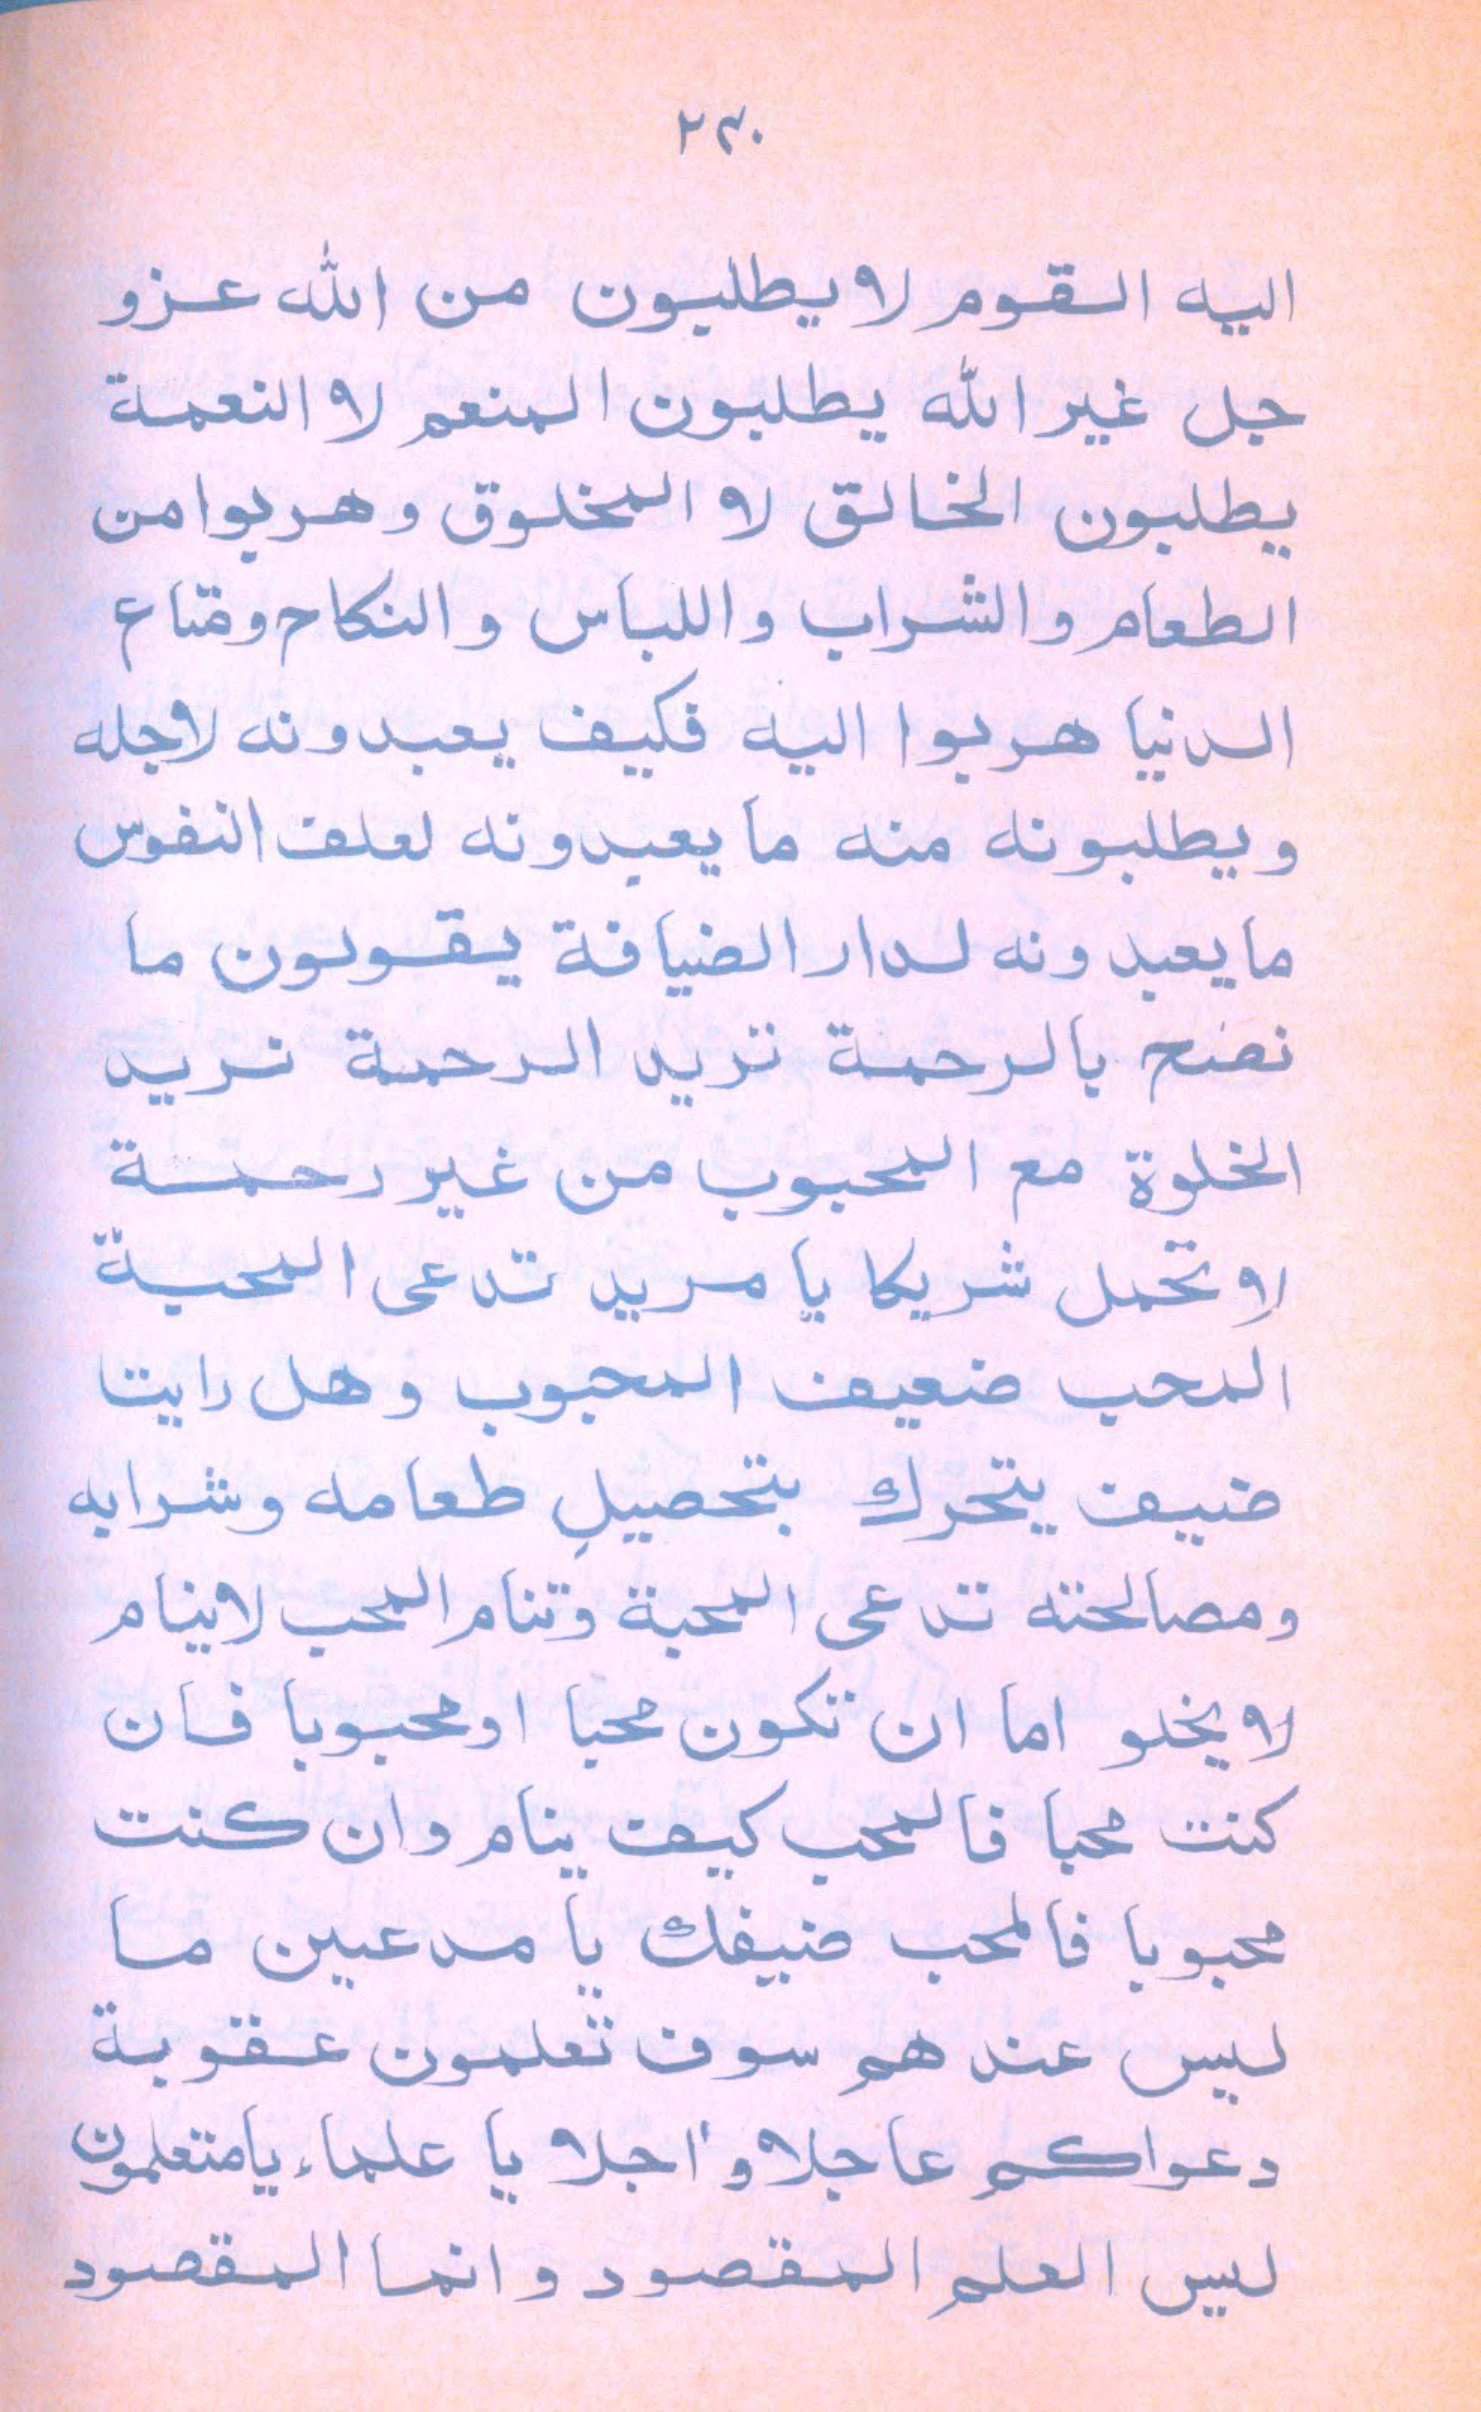 ٢٣٠
اليه القوم لا يطلبون من الله عز و
جل غير الله يطلبون المنعم لا النعمة
يطلبون الخالق لا المخلوق وهربوا من
الطعام والشراب واللباس والنكاح ومتاع
الدنيا هربوا اليه فكيف يعبدونه لاجله
ويطلبونه منه ما يعبدونه لعلف النفوس
ما يعبدونه لدار الضيافة يقولون ما
نصنح بالرحمة نريد الرحمة نريد
الخلوة مع المحبوب من غير رحمة
لا تحمل شريكا يا مريد تدعى المحبة
المحب ضعيف المحبوب وهل رايتا
ضيف يتحرك بتحصيل طعامه وشرابه
ومصالحته تدعى المحبة وتنام المحب لا ينام
لا يخلو اما ان تكون محبا او محبوبا فان
كنت محبا فالمحب كيف ينام وان كنت
محبوبا فالمحب ضيفك يا مدعين ما
ليس عندهم سوف تعلمون عقوبة
دعواكم عاجلا واجلا يا علماء يا متعلمون
ليس العلم المقصود وانما المقصود